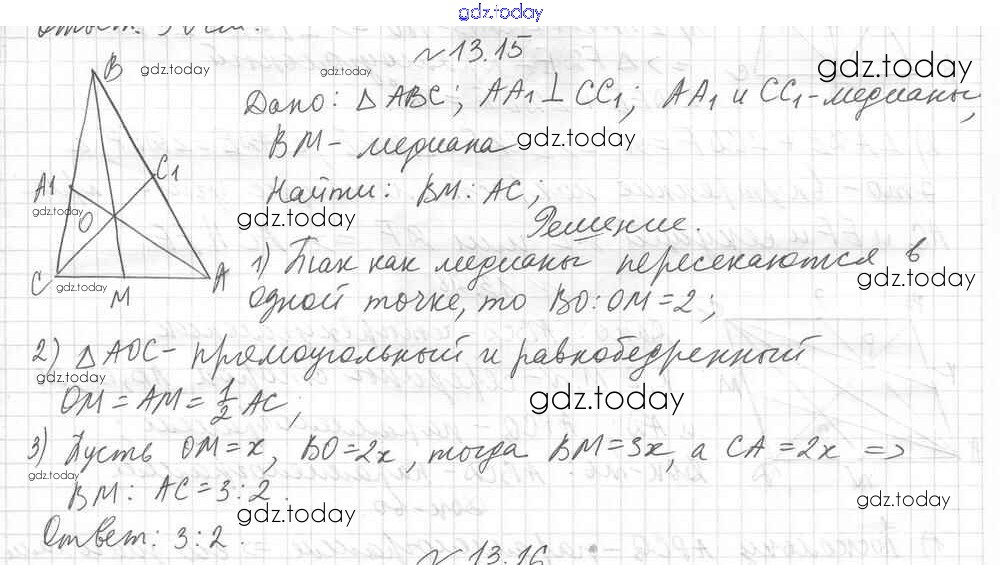 gdz.today
№ 13.15
B gdz.today gdz.today gdz.today
Дано: △ABC; AA₁⊥CC₁; AA₁ и CC₁-медианы,
BM- медиана gdz.today
A1 C1 Найти: BM: AC;
gdz.today O gdz.today Решение.
1) Так как медианы пересекаются в
C gdz.today M A gdz.today
одной точке, то BO:OM=2;
2) △AOC- прямоугольный и равнобедренный
gdz.today
OM=AM=½AC; gdz.today
3) Пусть OM=x, BO=2x, тогда BM=3x, а CA=2x =>
gdz.today gdz.today
BM: AC=3:2.
gdz.today
Ответ: 3:2.
№ 13.16